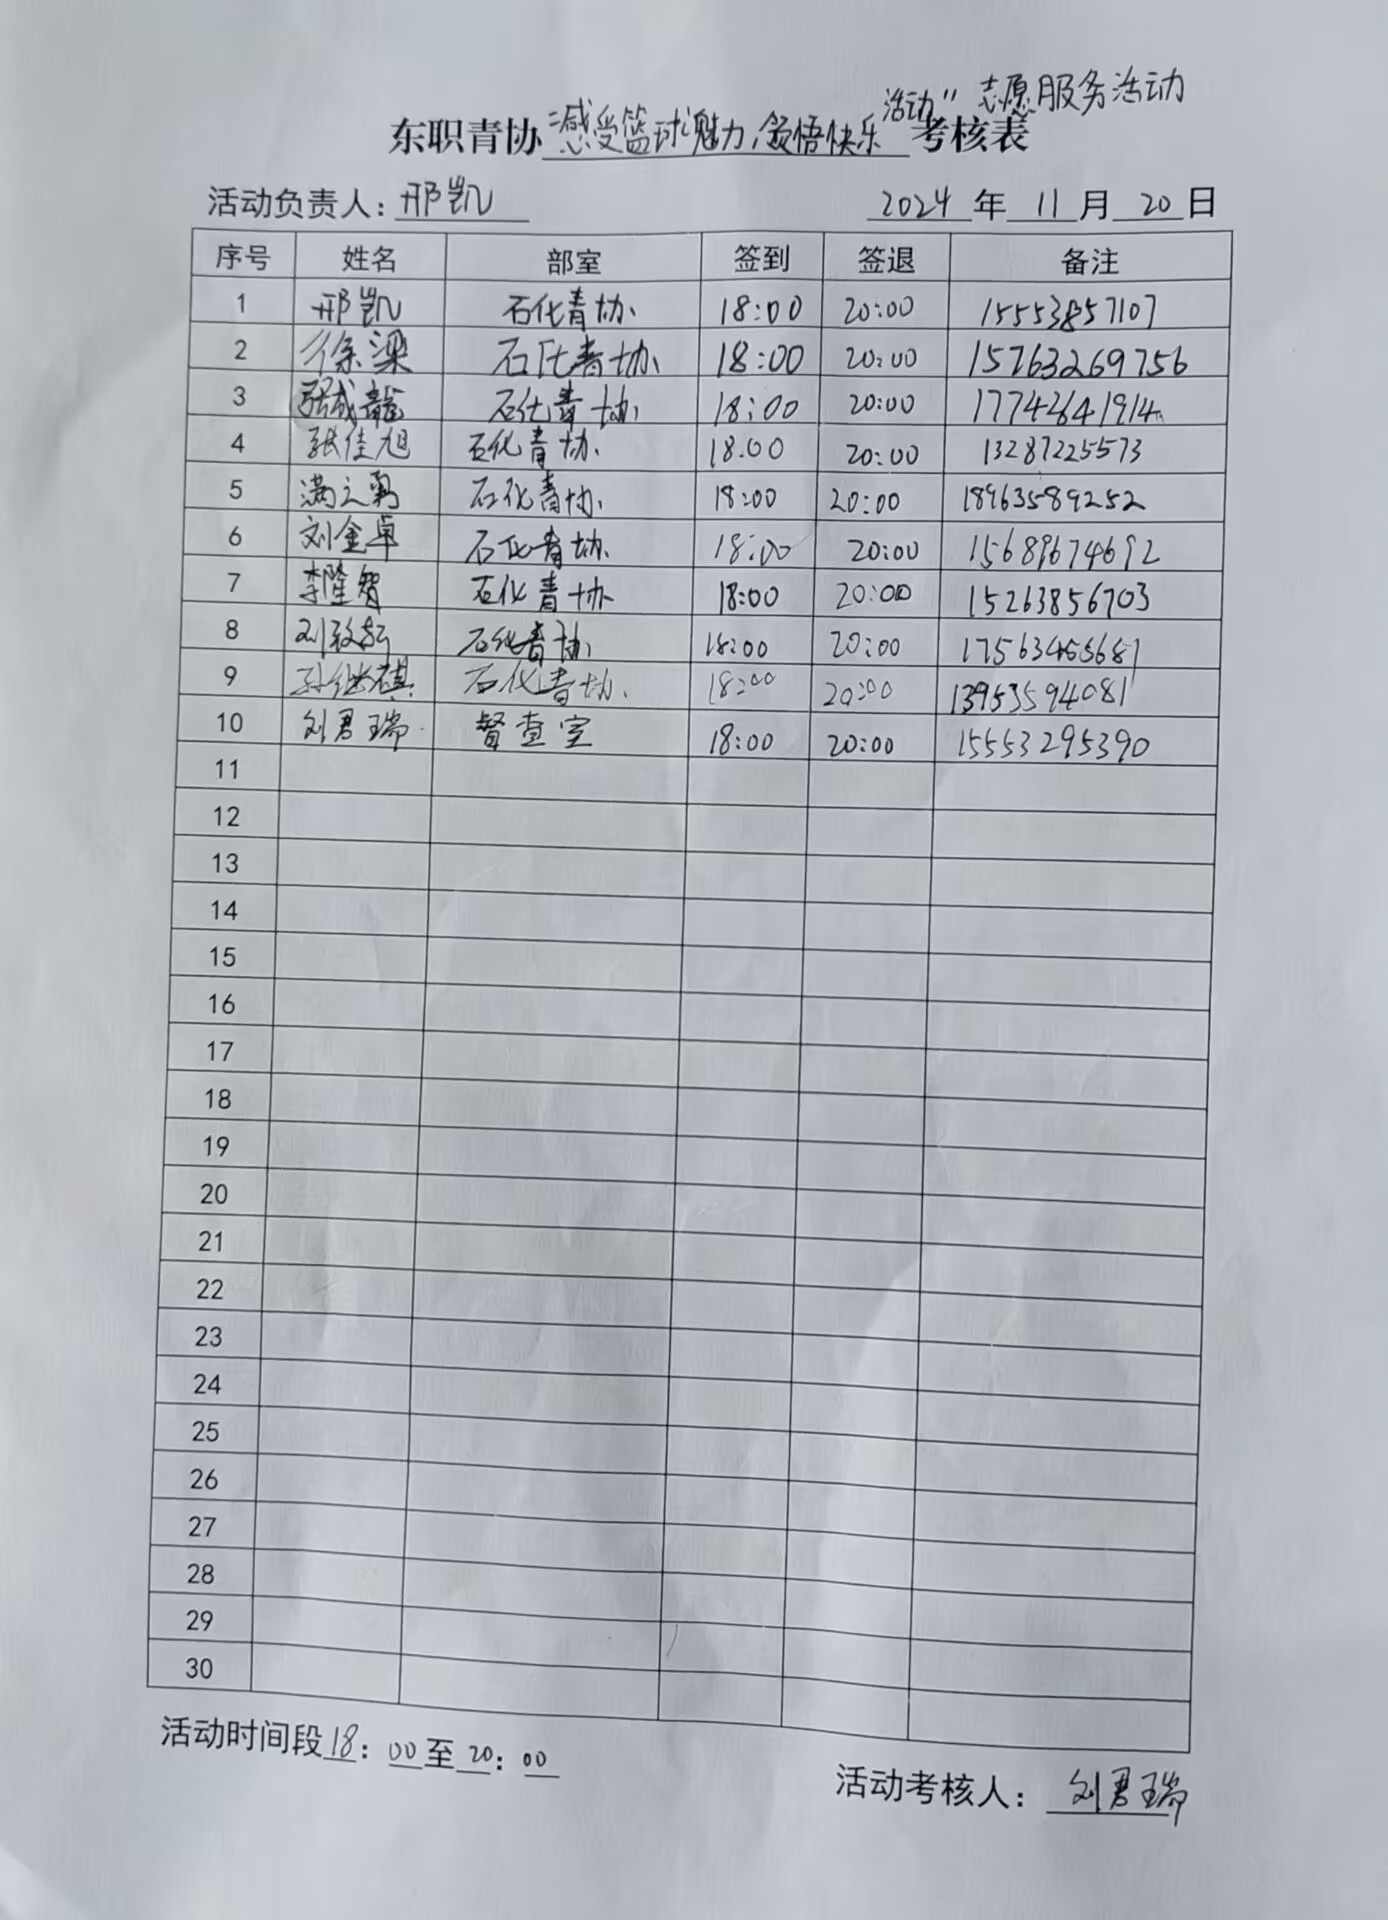 活动" 志愿服务活动
东职青协"感受篮球魅力,领悟快乐考核表
活动负责人：邢凯 2024年11月20日
序号 姓名 部室 签到 签退 备注
1 邢凯 石化青协 18:00 20:00 15553857107
2 徐梁 石化青协 18:00 20:00 15763269756
3 张成龍 石化青协 18:00 20:00 17742641914
4 张佳旭 石化青协 18:00 20:00 13287225573
5 满之勇 石化青协 18:00 20:00 18963589252
6 刘金卓 石化青协 18:00 20:00 15689674692
7 李隆智 石化青协 18:00 20:00 15263856703
8 石化青协 18:00 20:00
9 孙继祺 石化青协 18:00 20:00 13953594081
10 刘君瑞 督查室 18:00 20:00 15553295390
11
12
13
14
15
16
17
18
19
20
21
22
23
24
25
26
27
28
29
30
活动时间段18：00至20：00
活动考核人：刘君瑞